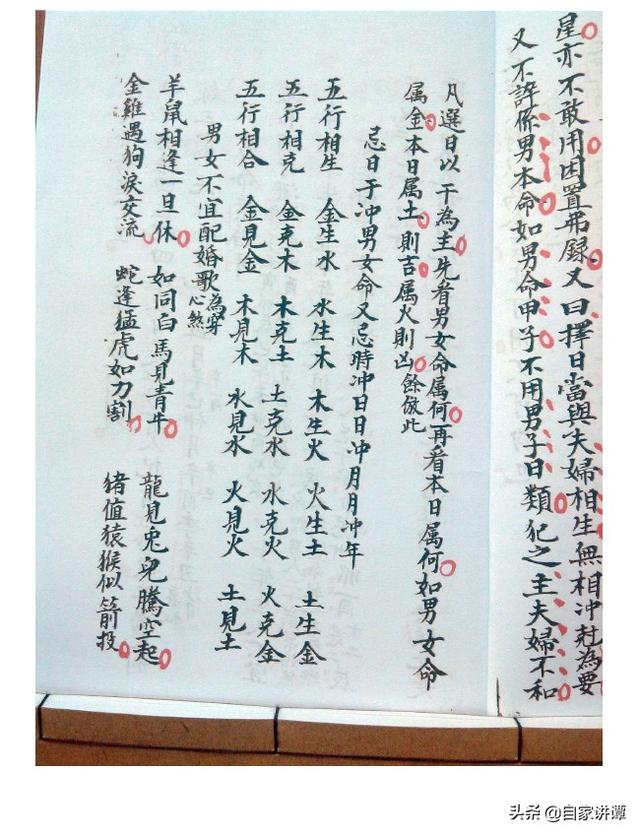 星亦不敢用困置弗録又曰擇日當與夫婦相生無相冲尅為要
又不許係男本命如男命甲子不用男子日類犯之主夫婦不和
凡選日以干為主先看男女命属何再看本日属何如男女命
属金本日属土則吉属火則凶餘倣此
忌日于冲男女命又忌時冲日日冲月月冲年
五行相生 金生水 水生木 木生火 火生土 土生金
五行相克 金克木 木克土 土克水 水克火 火克金
五行相合 金見金 木見木 水見水 火見火 土見土
男女不宜配婚歌為穿心煞
羊鼠相逢一旦休 如同白馬見青牛 龍見兎兒騰空起
金雞遇狗淚交流 蛇逢猛虎如刀割 猪值猿猴似箭投
头条 @自家讲谭